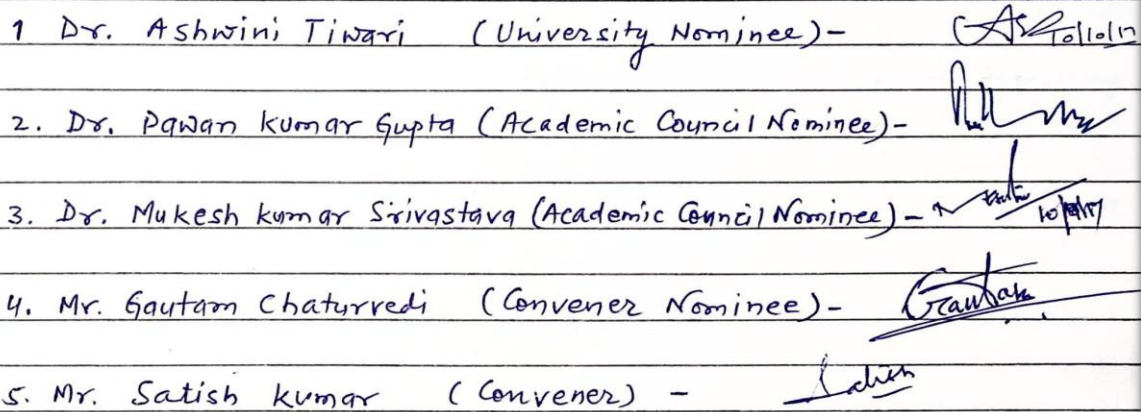 1 Dr. Ashwini Tiwari (University Nominee)- 10/10/17
2. Dr. Pawan kumar Gupta (Academic Council Nominee)-
3. Dr. Mukesh kumar Srivastava (Academic Council Nominee)-
4. Mr. Gautam Chaturvedi (Convener Nominee)- Gautam
5. Mr. Satish kumar (Convener) -